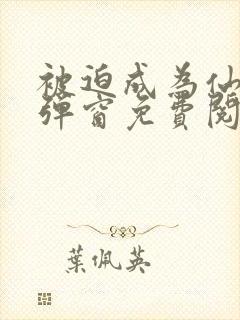 被迫成为仙
弹窗免费阅
葉佩英